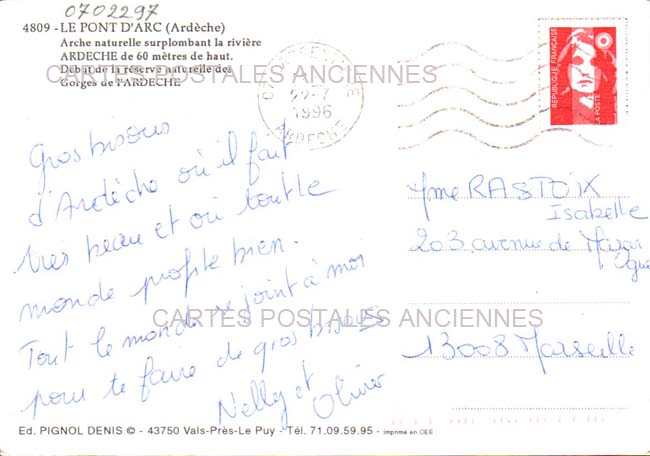 0702297
4809 - LE PONT D'ARC (Ardèche)
Arche naturelle surplombant la rivière
ARDECHE de 60 mètres de haut.
Début de la réserve naturelle des
Gorges de l'ARDECHE
CARTES POSTALES ANCIENNES
1996
ARDECHE
REPUBLIQUE FRANÇAISE
LA POSTE
Gros bisous
d'Ardèche où il fait
très beau et où tout le
monde profite bien.
Tout le monde se joint à moi
pour te faire de gros bisous
Nelly et
Olivier
Mme RASTOIX
Isabelle
203 avenue de
CARTES POSTALES ANCIENNES
13008 Marseille
Ed. PIGNOL DENIS © - 43750 Vals-Près-Le Puy - Tél. 71.09.59.95 - Imprimé en CEE